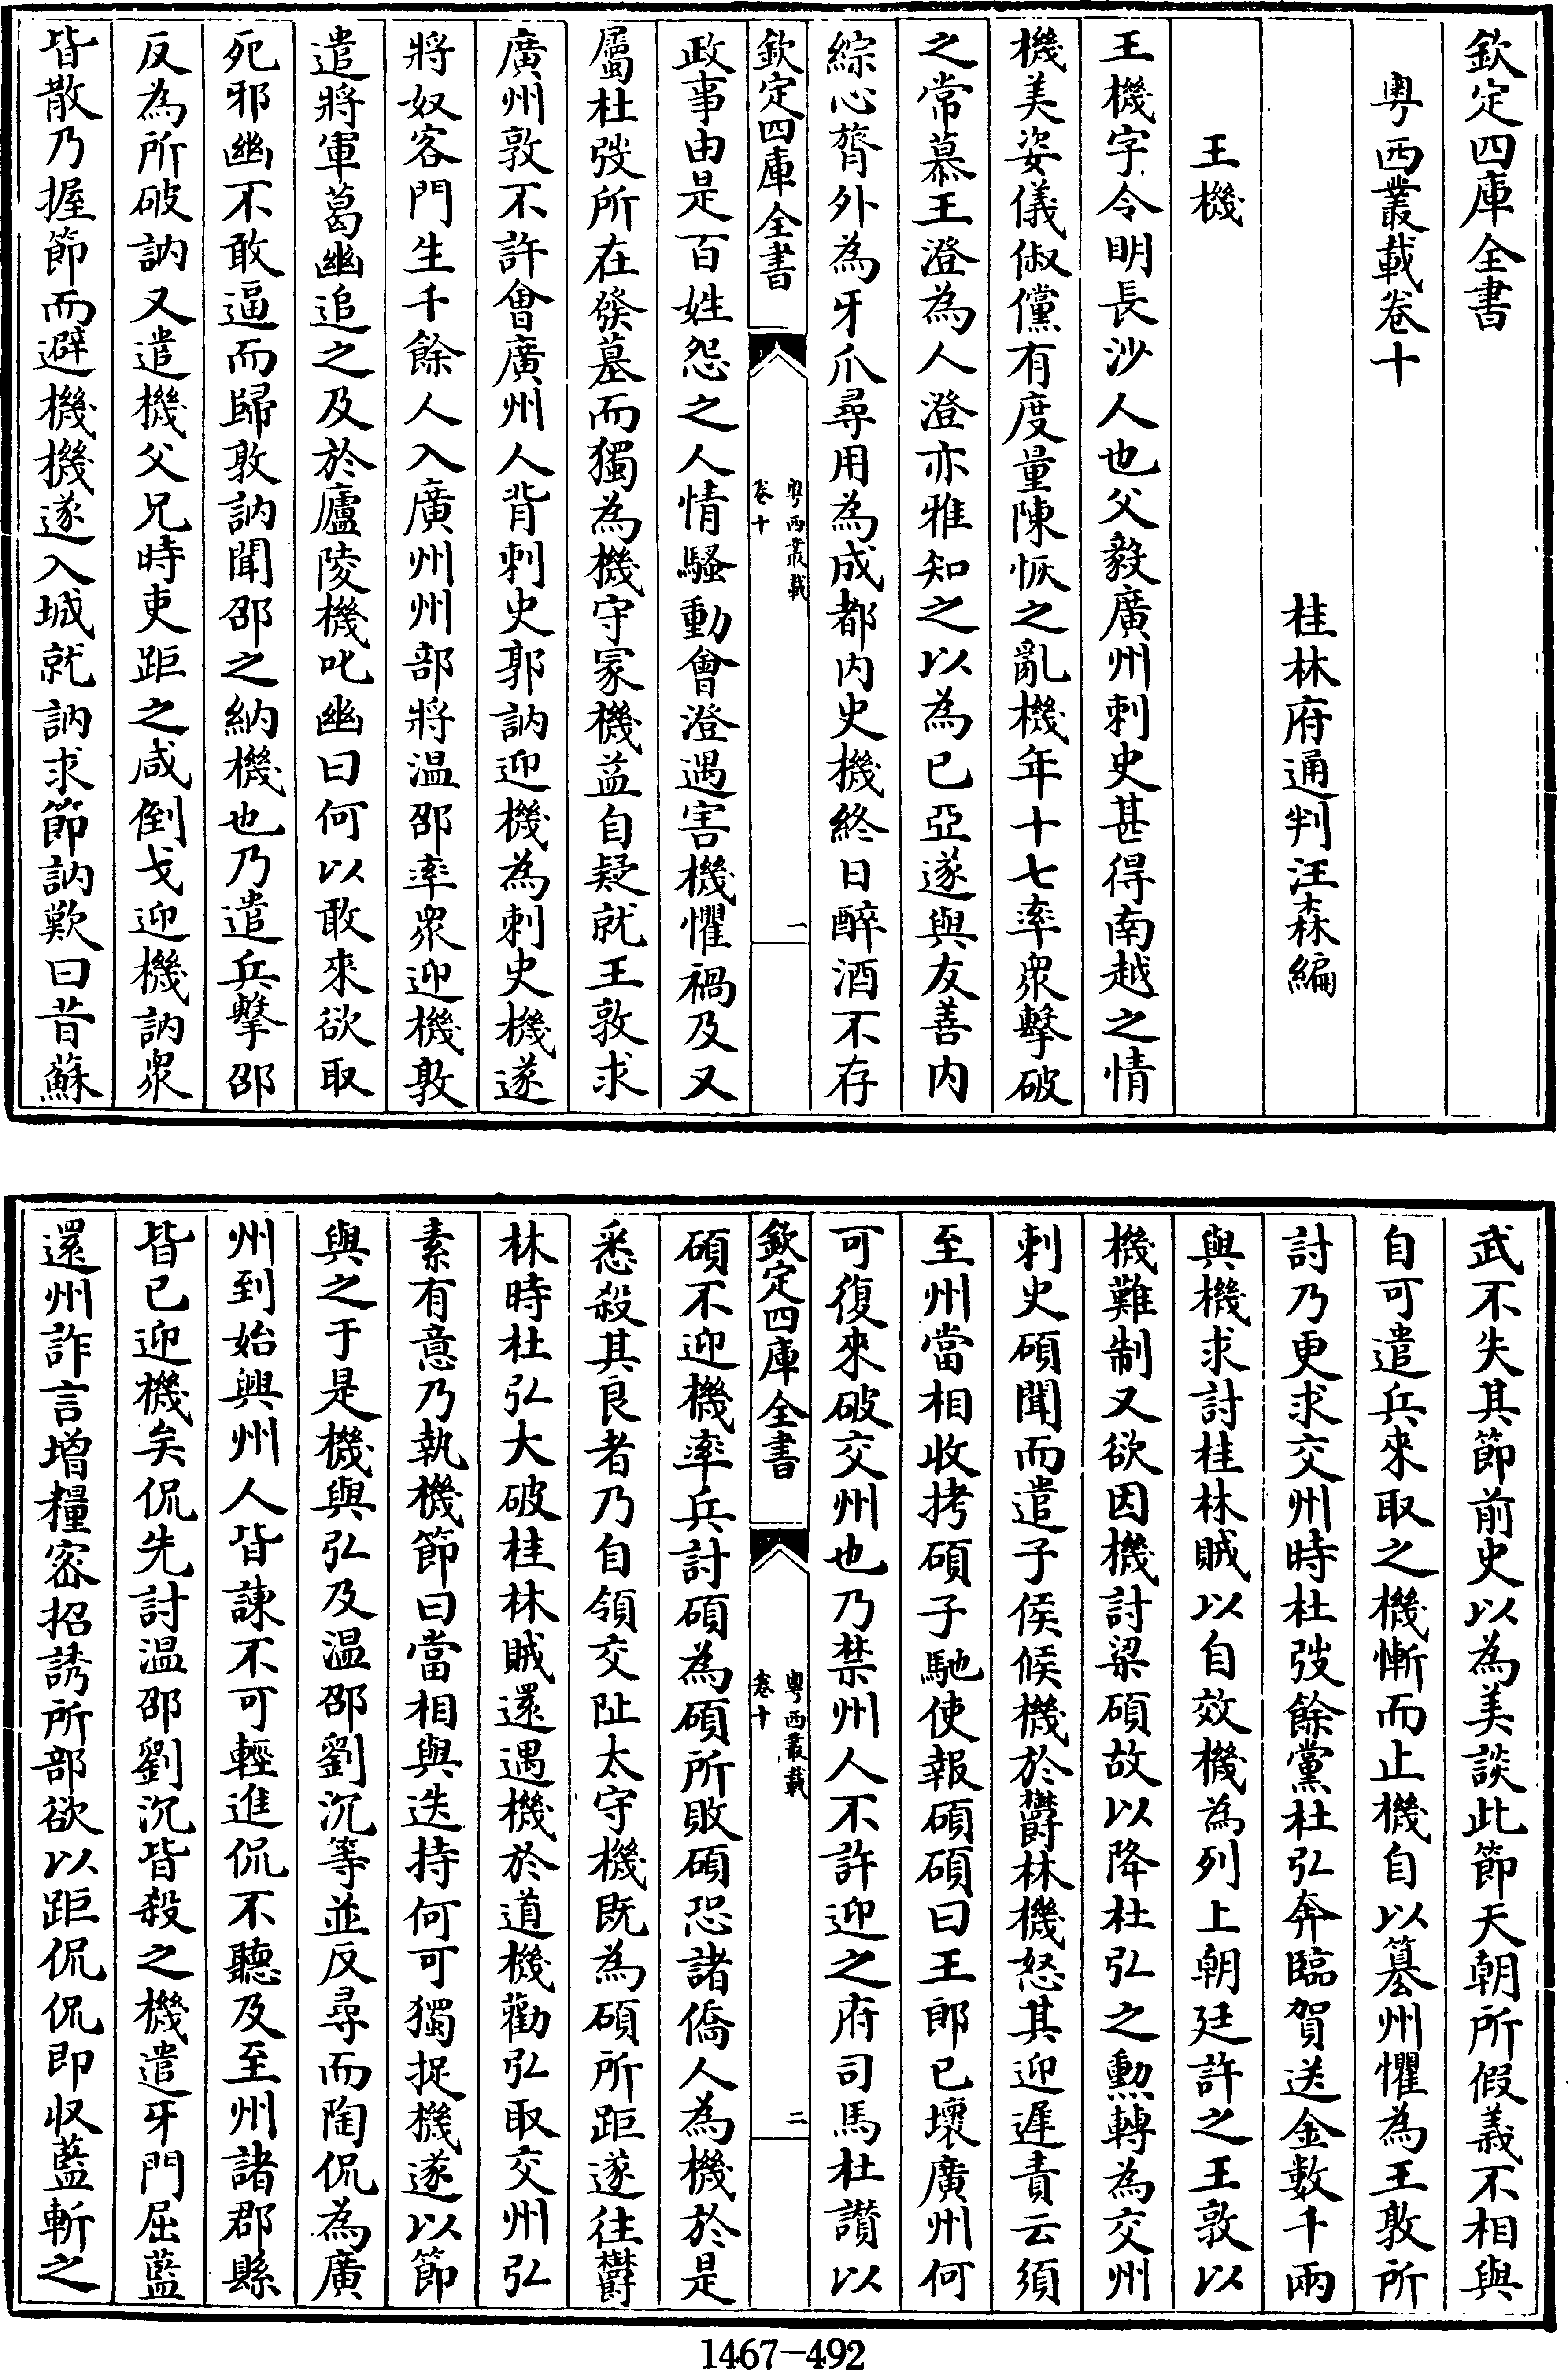 欽定四庫全書
粤西叢載卷十
桂林府通判汪森編
王機
王機字令明長沙人也父毅廣州刺史甚得南越之情
機美姿儀俶儻有度量陳恢之亂機年十七率衆擊破
之常慕王澄為人澄亦雅知之以為已亞遂與友善内
綜心膂外為牙爪尋用為成都内史機終日醉酒不存
欽定四庫全書
粤西叢載
卷十
一
政事由是百姓怨之人情騷動會澄遇害機懼禍及又
屬杜弢所在發墓而獨為機守冡機益自疑就王敦求
廣州敦不許會廣州人背刺史郭訥迎機為刺史機遂
將奴客門生千餘人入廣州州部將温邵率衆迎機敦
遣將軍葛幽追之及於廬陵機叱幽曰何以敢來欲取
死邪幽不敢逼而歸敦訥聞邵之納機也乃遣兵擊邵
反為所破訥又遣機父兄時吏距之咸倒戈迎機訥衆
皆散乃握節而避機機遂入城就訥求節訥歎曰昔蘇
武不失其節前史以為美談此節天朝所假義不相與
自可遣兵來取之機慚而止機自以篡州懼為王敦所
討乃更求交州時杜弢餘黨杜弘奔臨賀送金數千兩
與機求討桂林賊以自效機為列上朝廷許之王敦以
機難制又欲因機討梁碩故以降杜弘之勲轉為交州
刺史碩聞而遣子侯候機於鬱林機怒其迎遲責云須
至州當相收拷碩子馳使報碩碩曰王郎已壞廣州何
可復來破交州也乃禁州人不許迎之府司馬杜讃以
欽定四庫全書
粤西叢載
卷十
二
碩不迎機率兵討碩為碩所敗碩恐諸僑人為機於是
悉殺其良者乃自領交阯太守機既為碩所距遂往鬱
林時杜弘大破桂林賊還遇機於道機勸弘取交州弘
素有意乃執機節曰當相與迭持何可獨捉機遂以節
與之于是機與弘及温邵劉沉等並反尋而陶侃為廣
州到始興州人皆諫不可輕進侃不聽及至州諸郡縣
皆已迎機矣侃先討温邵劉沉皆殺之機遣牙門屈藍
還州詐言增糧密招誘所部欲以距侃侃即收藍斬之
1467-492